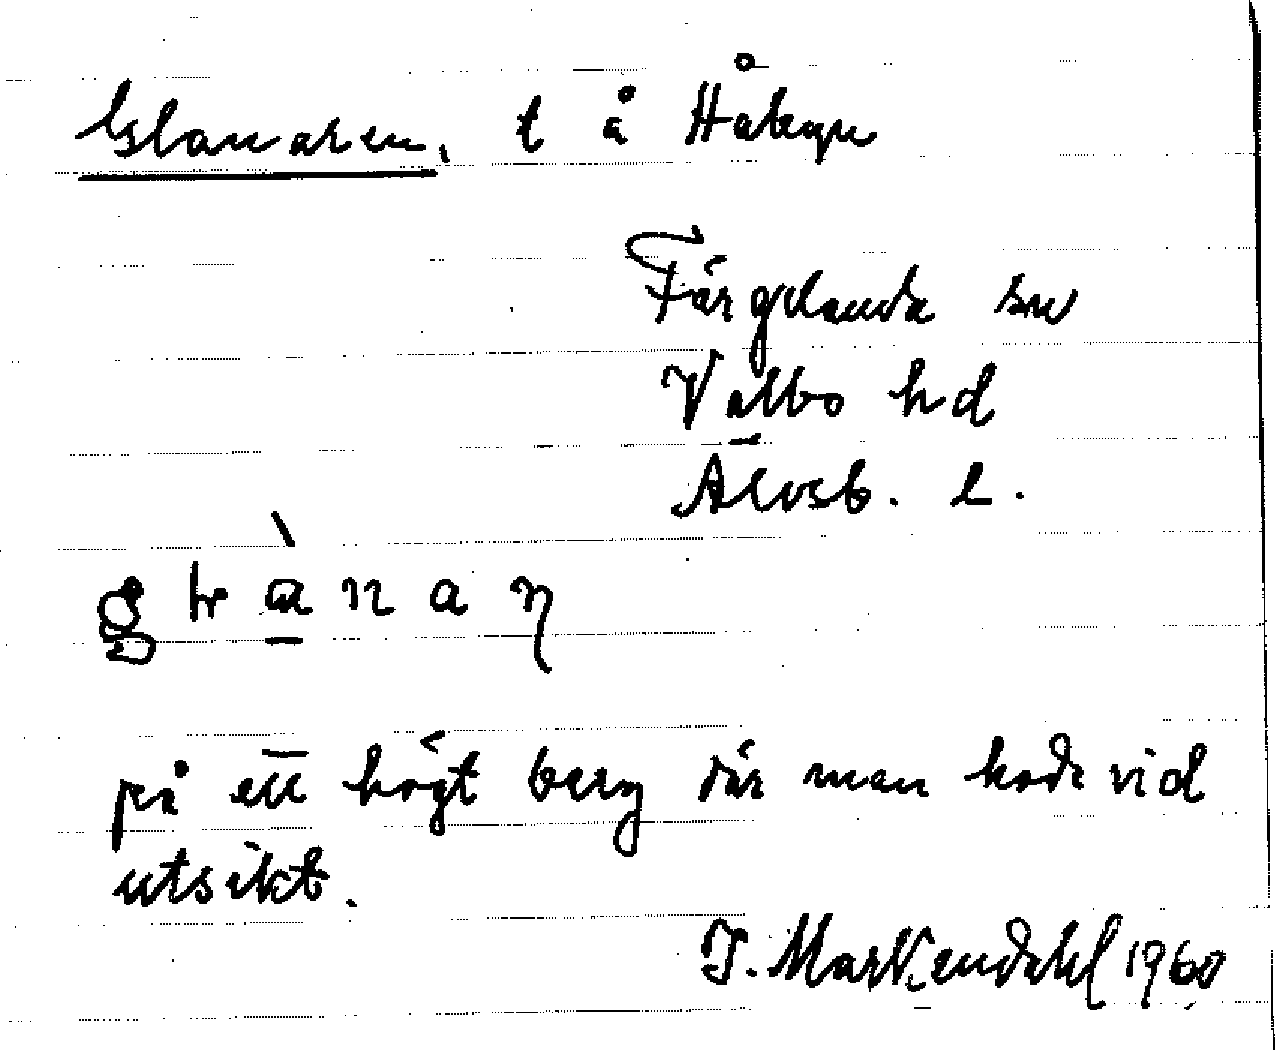 Glanaren, t å Håbyn
Färgelanda sn
Valbo hd
Älvsb. l.
på ett högt berg där man hade vid
utsikt.
J. Markendahl 1960